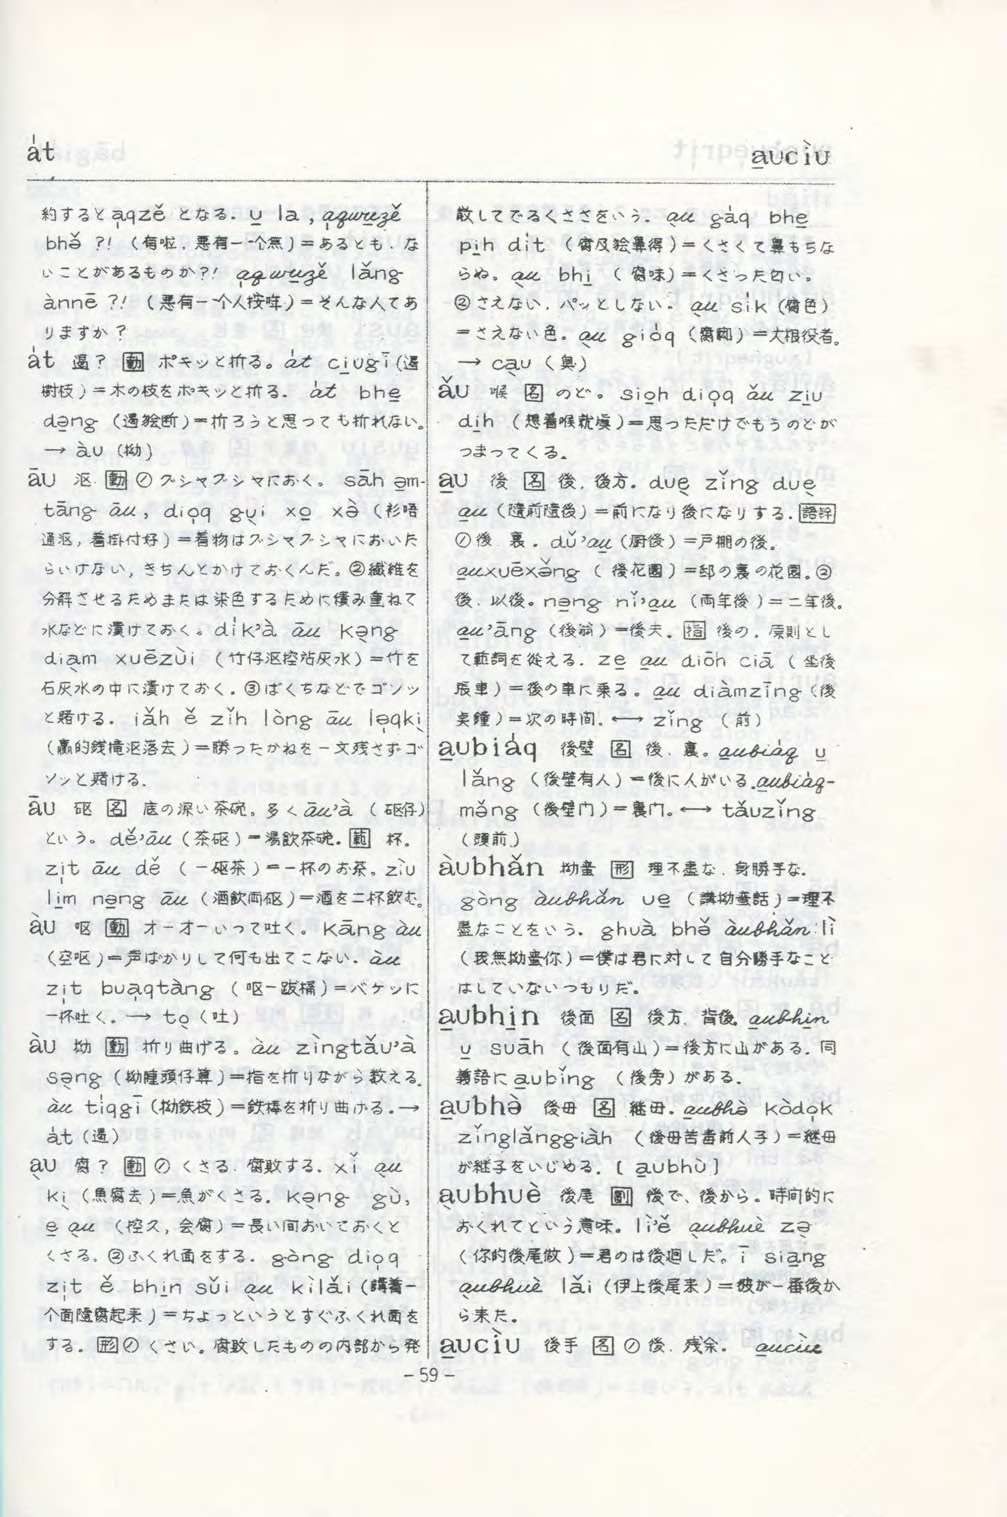 át
a̱ucìu
約するとa̱qzě となる. u̱ la , a̱qwuzě
bhə̌ ?! (有啦, 悪有一个無)=あるとも, な
いことがあるものか?! a̱qwuzě lǎng
ànnē ?! (悪有一个人按哖)=そんな人てあ
りますか?
át 遏? 動 ポキッと折る。át ciụgī (遏
樹枝)=木の枝をポキッと折る. át bhe
də̱ng (遏絵断)=折ろうと思っても折れない。
→ àu (拗)
āu 漚 動 ㋐グシャグシャにおく。sāh ə̱m-
tāng āu, diọq gụi xọ xə̀ (衫唔
通漚, 着掛付好)=着物はグシャグシャにおいた
らいけない, きちんとかけておくんだ。②繊維を
分解させるためまたは染色するために積み重ねて
水などに漬けておく。dik'à āu kə̱ng
diạm xuēzùi (竹仔漚控站灰水)=竹を
石灰水の中に漬けておく. ③ばくちなどでゴソッ
と賭ける. iǎh ě zǐh lòng āu lə̱qkị
(贏的銭攏漚落去)=勝ったかねを一文残さずゴ
ソッと賭ける.
āu 砙 名 底の深い茶碗。多くāu'à (砙仔)
という。dě'āu (茶砙)=湯飲茶碗。範 杯.
zịt āu dě (一砙茶)=一杯のお茶。zìu
lịm nə̱ng āu (酒飲両砙)=酒を二杯飲む。
àu 呕 動 オーオーいって吐く。kāng àu
(空呕)=声ばかりして何も出てこない. àu
zịt buạqtàng (呕一跋桶)=バケツに
一杯吐く.→ tọ (吐)
àu 拗 動 折り曲げる。àu zìngtǎu'à
sə̱ng (拗踵頭仔算)=指を折りながら数える.
àu tiqgī (拗鉄枝)=鉄棒を折り曲げる.→
át (遏)
ạu 腐? 動 ㋐くさる. 腐敗する. xǐ ạu
kị (魚腐去)=魚がくさる. kə̱ng gù,
e̱ ạu (控久, 会腐)=長い間おいておくと
くさる。②ふくれ面をする. gòng diọq
zịt ě bhịn sǔi ạu kìlǎi (講着一
个面隨腐起来)=ちょっというとすぐふくれ面を
する. 形 ㋐くさい。腐敗したものの内部から発
散してでるくささをいう. ạu gáq bhe
pịh dít (腐及絵鼻得)=くさくて鼻もちな
らぬ。ạu bhị (腐味)=くさった匂い。
②さえない. パッとしない. ạu sík (腐色)
=さえない色。ạu gióq (腐脚)=大根役者。
→ cạu (臭)
ǎu 喉 名 のど。siọh diọq ǎu zịu
dịh (想着喉就塡)=思っただけでもうのどが
つまってくる.
a̱u 後 名 後. 後方. duẹ zǐng duẹ
a̱u (隨前隨後)=前になり後になりする. 語幹
㋐後. 裏. dǔ'a̱u (厨後)=戸棚の後。
a̱uxuēxə̌ng (後花園)=邸の裏の花園。②
後. 以後. nə̱ng nǐ'a̱u (両年後)=二年後。
a̱u'āng (後翁)=後夫. 指 後の. 原則とし
て範詞を従える. ze̱ a̱u diōh ciā (坐後
張車)=後の車に乗る. a̱u diàmzīng (後
奌鐘)=次の時間. ←→ zǐng (前)
a̱ubiáq 後壁 名 後, 裏。a̱ubiáq u̱
lǎng (後壁有人)=後に人がいる. a̱ubiáq-
mə̌ng (後壁门)=裏门。←→ tǎuzǐng
(頭前)
àubhǎn 拗蛮 形 理不盡な. 身勝手な.
gòng àubhǎn ue̱ (講拗蛮話)=理不
盡なことをいう. ghuà bhə̌ àubhǎn lì
(我無拗蛮你)=僕は君に対して自分勝手なこと
はしていないつもりだ。
a̱ubhịn 後面 名 後方. 背後. a̱ubhịn
u̱ suāh (後面有山)=後方に山がある. 同
義語にa̱ubǐng (後旁)がある.
a̱ubhə̀ 後母 名 継母. a̱ubhə̀ kòdọk
zǐnglǎnggiàh (後母苦毒前人子)=継母
が継子をいじめる. [a̱ubhù]
a̱ubhuè 後尾 副 後で, 後から. 時间的に
おくれてという意味. lì'ě a̱ubhuè zə̣
(你的後尾做)=君のは後廻しだ。ī siạng
a̱ubhuè lǎi (伊上後尾来)=彼が一番後か
ら来た.
a̱ucìu 後手 名 ㋐後. 残余. a̱ucìu
- 59 -